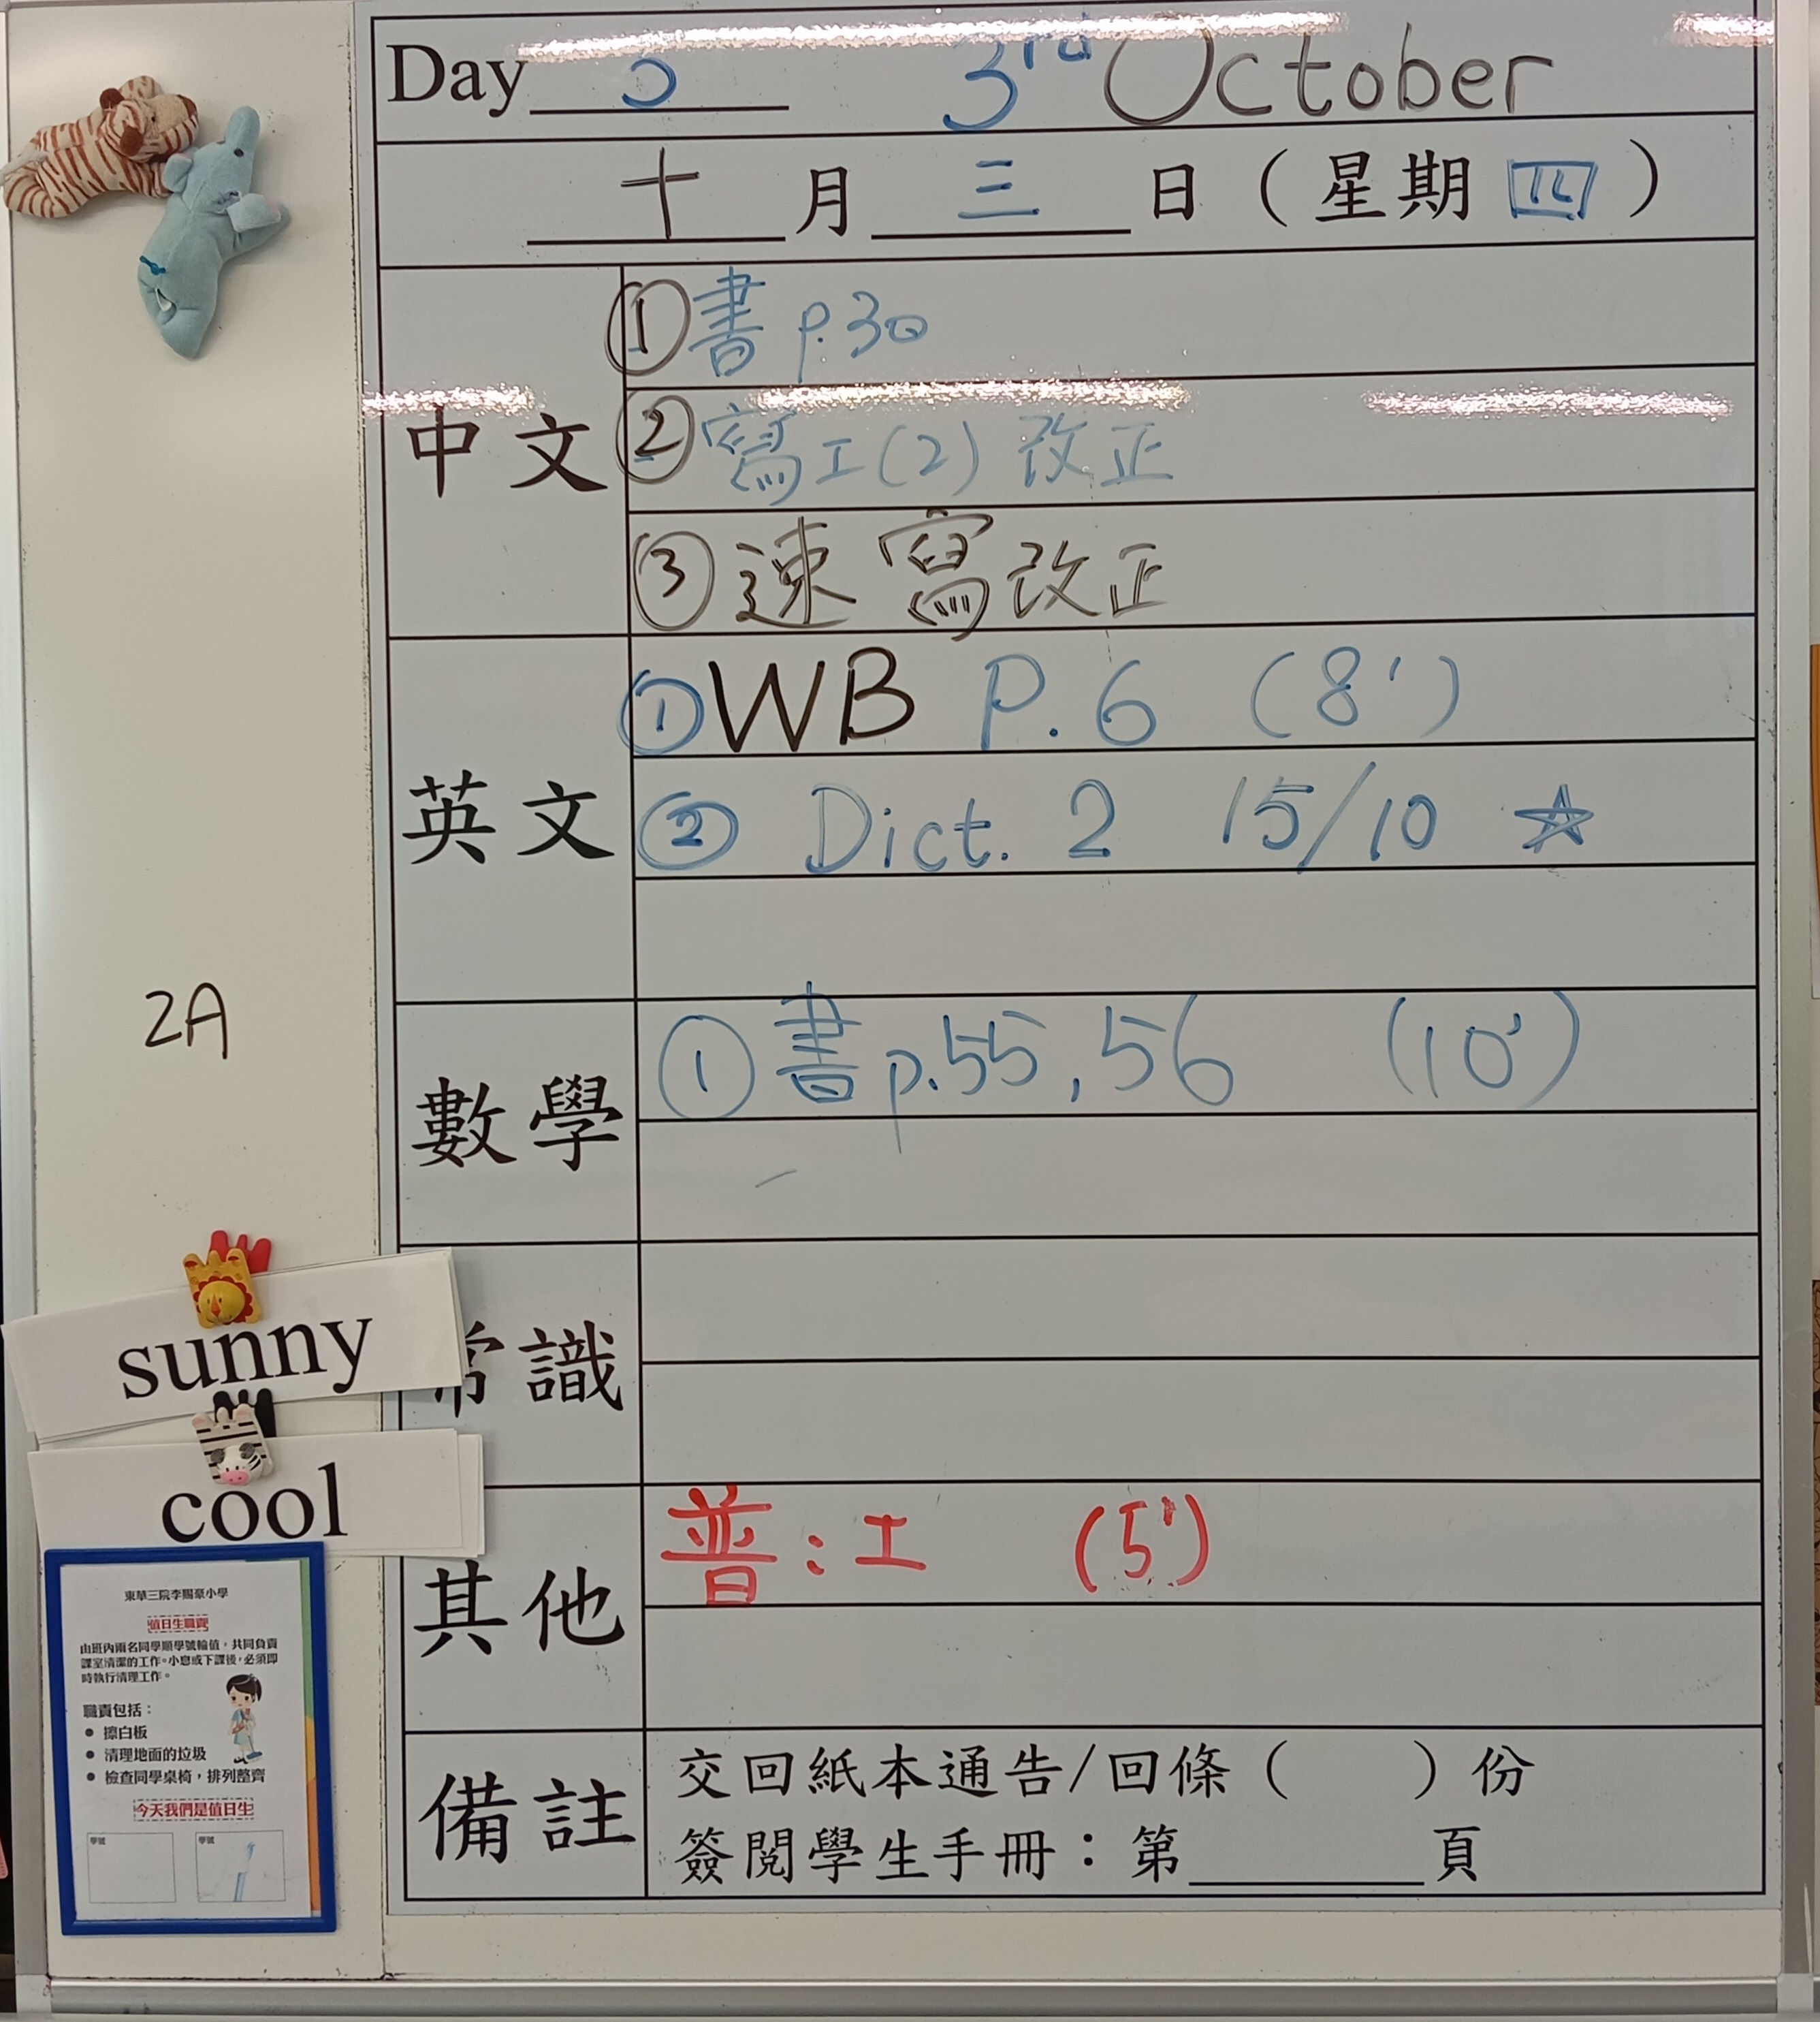 Day 3rd October
十月三日（星期四）
中文
①書 p.30
②寫工(2) 改正
③速寫改正
英文
①WB P.6 (8')
② Dict. 2 15/10 ☆
數學
①書p.55,56 (10')
常識
其他
普:工 (5')
備註
交回紙本通告/回條（ ）份
簽閱學生手冊：第______頁
2A
sunny
cool
東華三院李賜豪小學
值日生職責
由班內兩名同學順學號輪值，共同負責
課室清潔的工作。小息或下課後，必須即
時執行清理工作。
職責包括：
● 擦白板
● 清理地面的垃圾
● 檢查同學桌椅，排列整齊
今天我們是值日生
學號 學號